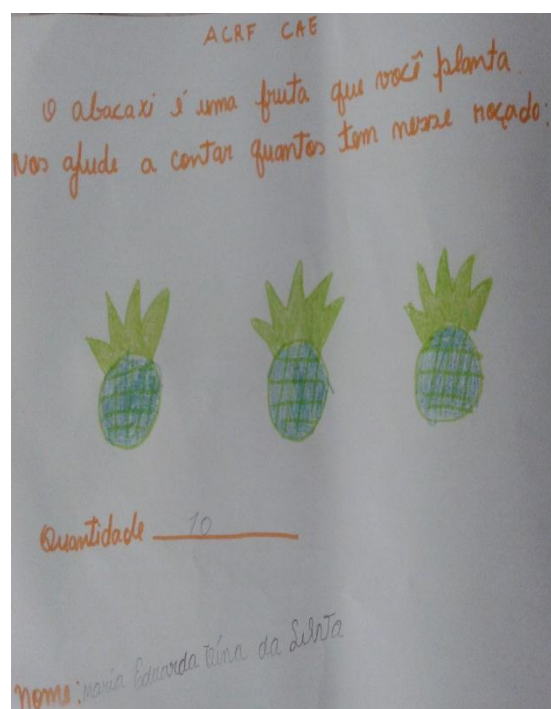 ACRF CAE
O abacaxi é uma fruta que você planta.
Nos ajude a contar quantos tem nesse roçado:
Quantidade 10
Nome: Maria Eduarda da